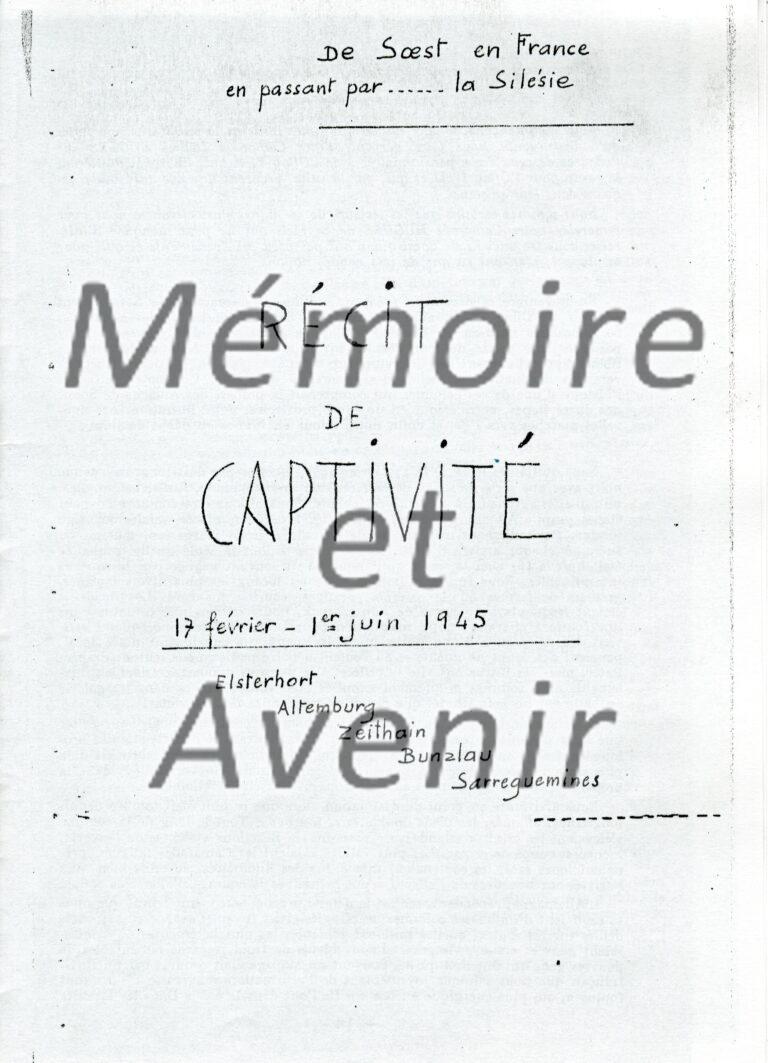 De Sœst en France
en passant par ...... la Silésie
RÉCIT
DE
CAPTIVITÉ
17 février - 1er juin 1945
Elsterhort
Altemburg
Zeithain
Bunzlau
Sarreguemines
Mémoire
et
Avenir